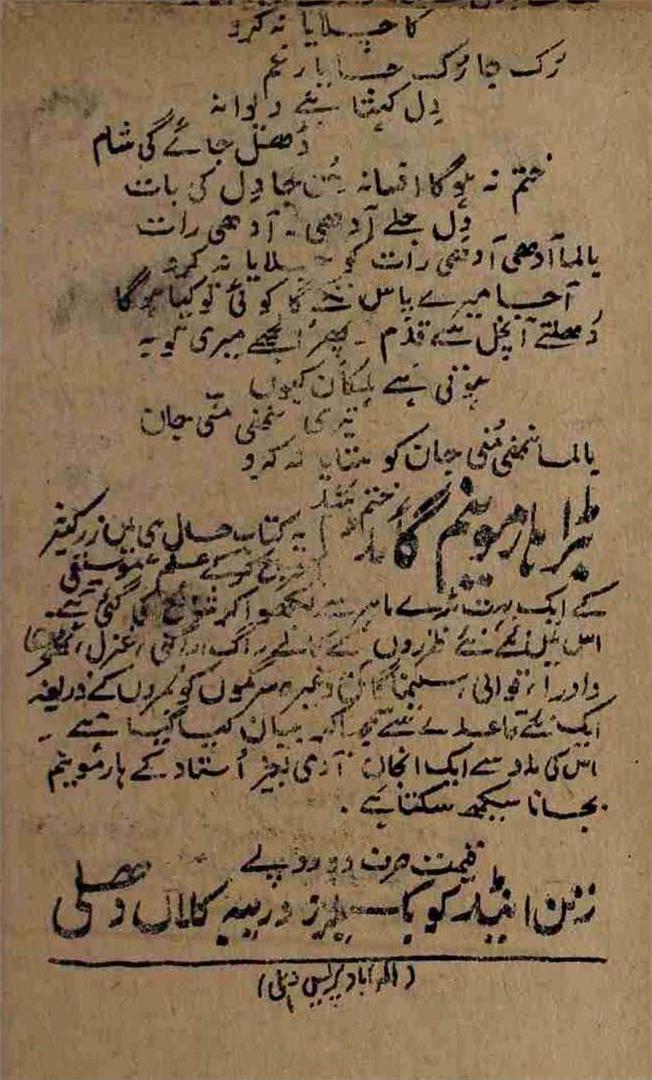 کا جلایا نہ کرو
رک جا رک جا یار غم
دل کہتا ہے دیوانہ
ڈھل جائے گی شام
ختم نہ ہوگا افسانہ سن جا دل کی بات
دل جلے آدھی آدھی رات
بالما آدھی آدھی رات کو جلایا نہ کرو
آجا میرے پاس کوئی تو کیا ہوگا
ڈھلتے آنچل سے قدم ۔ پھر الجھے میری تو یہ
ہوتی ہے ہلکان کیوں
تیری ننھی منی جان
بالما ننھی منی جان کو ستایا نہ کرو
ختم شد
بڑا ہارمونیم گائڈ
یہ کتاب حال ہی میں زر کثیر
خرچ کر کے علم موسیقی
کے ایک بہت بڑے ماہر سے لکھوا کر شائع کی گئی ہے۔
اس میں نئے نئے طرزوں کے گانے راگ راگنی، غزل،
دادرا، قوالی، سینما گانے وغیرہ سرگموں کو نمبروں کے ذریعہ
ایک نئے قاعدے سے بیان کیا گیا ہے ۔
اس کی مدد سے ایک انجان آدمی بغیر استاد کے ہارمونیم
بجانا سیکھ سکتا ہے ۔
قیمت صرف دو روپے
رتن اینڈ کو بک سیلرز دریبہ کلاں دھلی
(الہ آباد پریس دہلی)